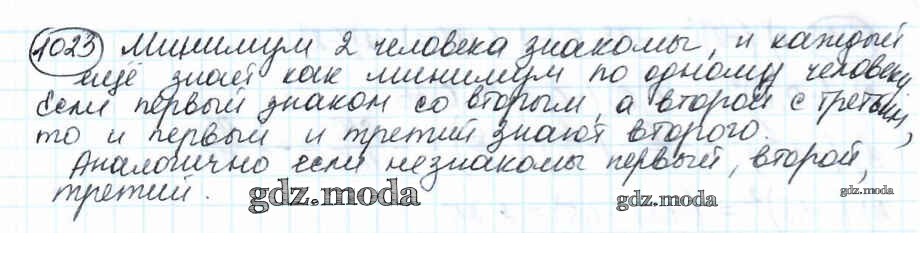 1023 Минимум 2 человека знакомы, и каждый
ещё знает как минимум по одному человеку.
Если первый знаком со вторым, а второй с третьим,
то и первый и третий знают второго.
Аналогично если незнакомы первый, второй,
третий.
gdz.moda
gdz.moda
gdz.moda